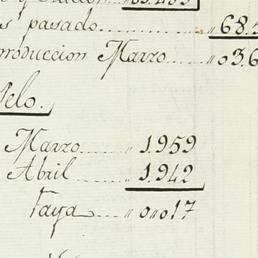 s pasado 68.5
roduccion Marzo " 03.6
Pelo.
Marzo " 1.959
Abril " 1.942
Faya " 0,,017